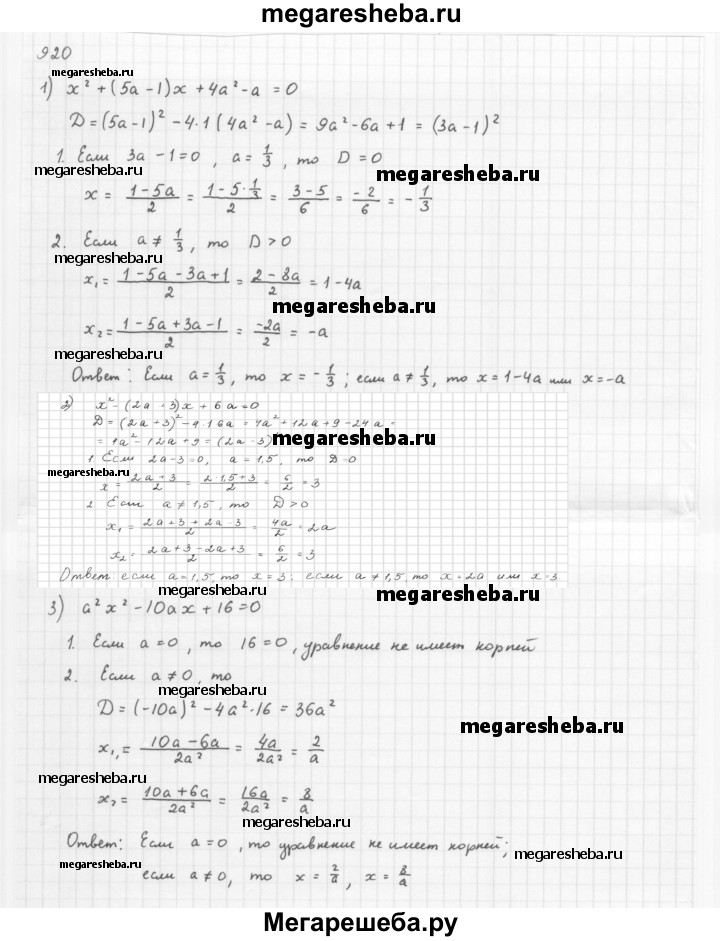 megaresheba.ru
920
megaresheba.ru
1) x² + (5a − 1)x + 4a² − a = 0
D = (5a−1)² − 4·1 (4a² − a) = 9a² − 6a + 1 = (3a−1)²
1. Если 3a − 1 = 0, a = 1/3, то D = 0
megaresheba.ru
megaresheba.ru
x = (1−5a)/2 = (1−5·1/3)/2 = (3−5)/6 = −2/6 = −1/3
2. Если a ≠ 1/3, то D > 0
megaresheba.ru
x₁ = (1−5a−3a+1)/2 = (2−8a)/2 = 1−4a
megaresheba.ru
x₂ = (1−5a+3a−1)/2 = −2a/2 = −a
megaresheba.ru
Ответ: Если a = 1/3, то x = −1/3; если a ≠ 1/3, то x = 1−4a или x = −a
2) x² − (2a + 3)x + 6a = 0
D = (2a + 3)² − 4·1·6a = 4a² + 12a + 9 − 24a =
= 4a² − 12a + 9 = (2a − 3)
megaresheba.ru
1. Если 2a − 3 = 0, a = 1,5, то D = 0
megaresheba.ru
x = (2a + 3)/2 = (2·1,5+3)/2 = 6/2 = 3
2. Если a ≠ 1,5, то D > 0
x₁ = (2a + 3 + 2a − 3)/2 = 4a/2 = 2a
megaresheba.ru
x₂ = (2a + 3 − 2a + 3)/2 = 6/2 = 3
Ответ: если a = 1,5, то x = 3; если a ≠ 1,5, то x = 2a или x = 3
megaresheba.ru
3) a²x² − 10ax + 16 = 0
1. Если a = 0, то 16 = 0, уравнение не имеет корней
2. Если a ≠ 0, то
megaresheba.ru
D = (−10a)² − 4a²·16 = 36a²
megaresheba.ru
x₁ = (10a − 6a)/2a² = 4a/2a² = 2/a
megaresheba.ru
x₂ = (10a + 6a)/2a² = 16a/2a² = 8/a
megaresheba.ru
Ответ: Если a = 0, то уравнение не имеет корней;
megaresheba.ru
megaresheba.ru
если a ≠ 0, то x = 2/a, x = 8/a
Мегарешеба.ру